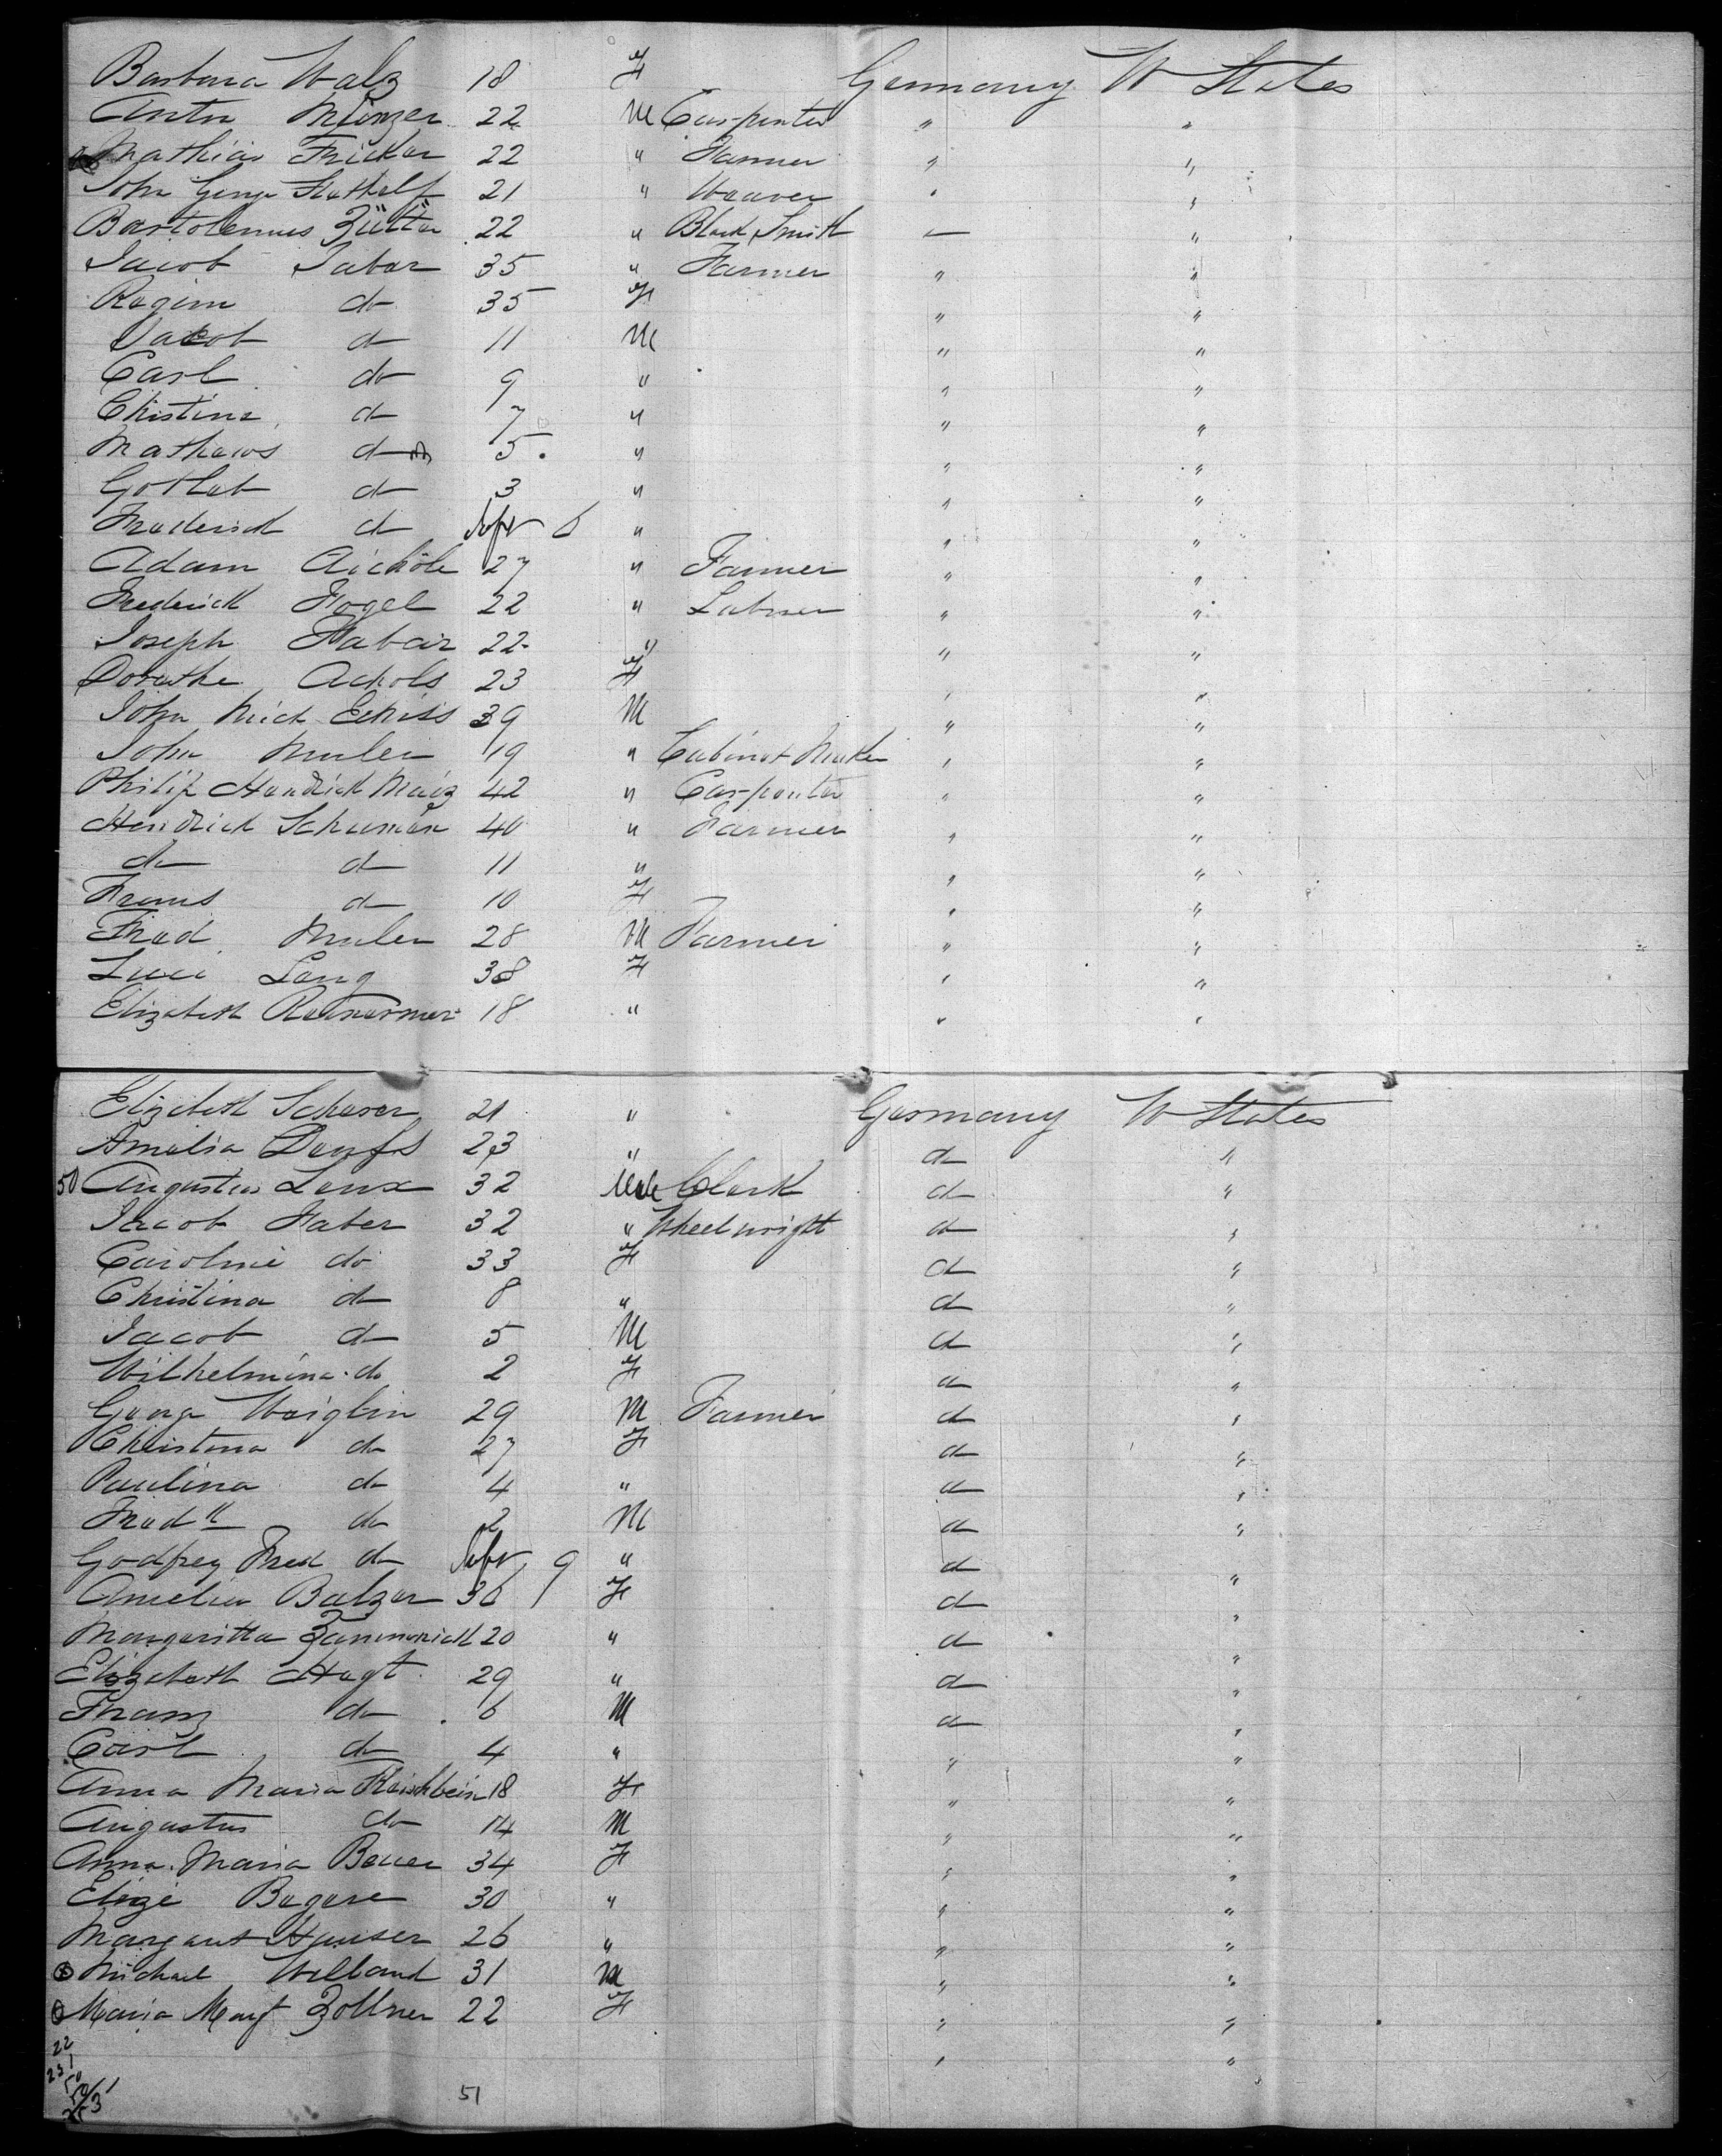 Barbara Walz 18 F Germany U States
Anton Munzer 22 M Carpenter " "
Mathias Fricker 22 " Farmer " "
John George 21 " Weaver " "
Bartolemus Zütter 22 " Black Smith — "
Jacob Sabar 35 " Farmer " "
Regina do 35 F " "
Jacob do 11 M " "
Carl do 9 " " "
Christina do 7 " " "
Mathews do 5 " " "
Gotlab do 3 " " "
Frederick do Inft 6 " " "
Adam Aichöle 27 " Farmer " "
Frederick Fogel 22 " Labrer " "
Joseph Habair 22 " " "
Dorathe Achols 23 F " "
John Mich Echiss 39 M " "
John Muler 19 " Cabinet Maker " "
Philip Hendrick Maiz 42 " Carpenter " "
Hendrick Schuman 40 " Farmer " "
do do 11 " " "
Frans do 10 F " "
Fred Muler 28 M Farmer " "
Luci Lang 38 F " "
Elizabeth 18 " " "
Elizabeth Scherer 21 " Germany U States
Amalia 23 " do "
50 Augustus Lenx 32 Male Clerk do "
Jacob Faber 32 " Wheelwright do "
Caroline do 33 F do "
Christina do 8 " do "
Jacob do 5 M do "
Wilhelmina do 2 F do "
George Waiglin 29 M Farmer do "
Christena do 27 F do "
Paulina do 4 " do "
Fredk do 2 M do "
Godfrey Fred do Inft 9 " do "
Amelia Balzer 36 F do "
Margaritta Zammerick 20 " do "
Elizabeth Hagt 29 " do "
Franz do 6 M do "
Carl do 4 " " "
Anna Maria Raischbein 18 F " "
Augustus do 14 M " "
Anna Maria Bauer 34 F " "
Elize Bagere 30 " " "
Margaret Hauser 26 " " "
Michael Welland 31 M " "
Maria Margt Zollner 22 F " "
22
231
51